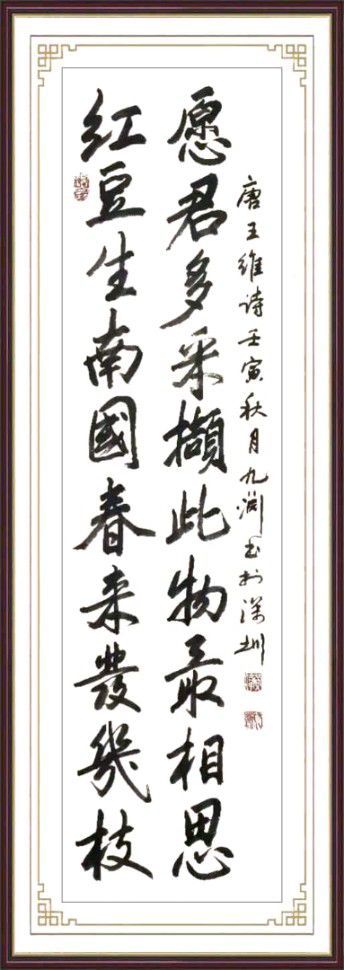 红豆生南國春来發幾枝
愿君多采擷此物最相思
唐王维诗壬寅秋月九润书於深圳